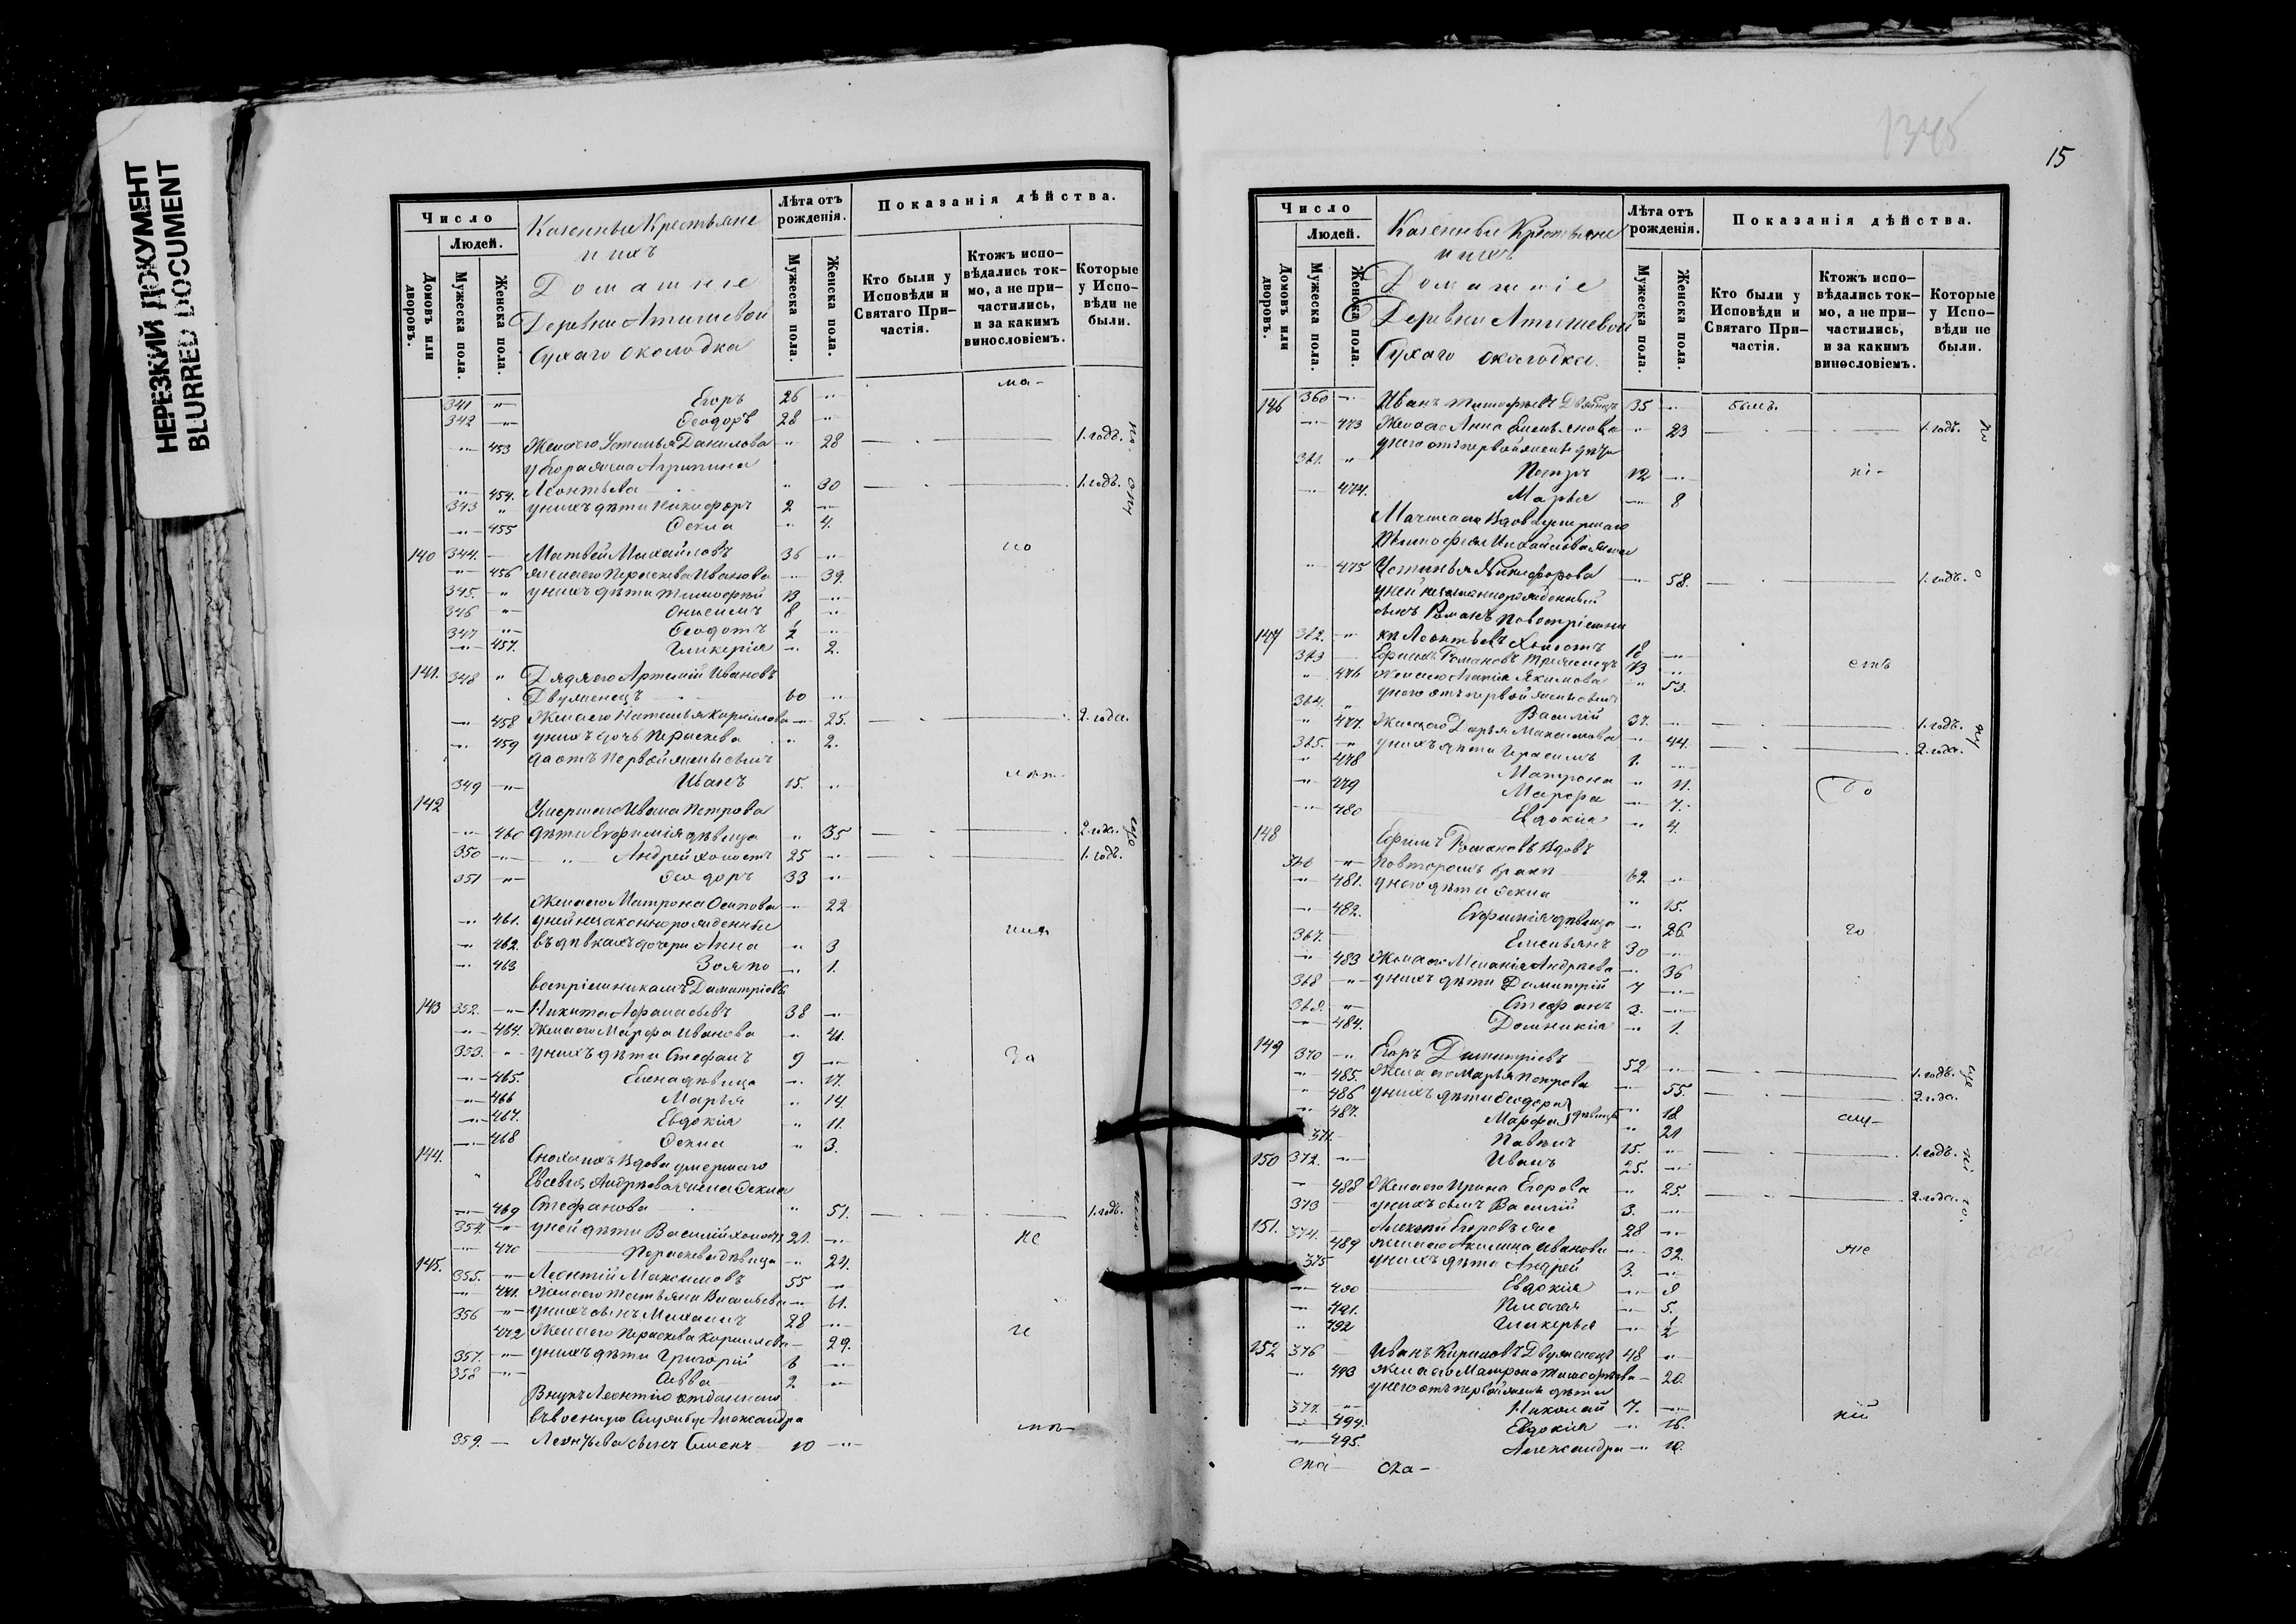 НЕРЕЗКИЙ ДОКУМЕНТ
BLURRED DOCUMENT
Число
Людей.
Домовъ или дворовъ.
Мужеска пола.
Женска пола.
Казенные Крестьяне
и ихъ
Домашніе
Деревни Атишевой
Сухаго околодка
Лѣта отъ рожденія.
Мужеска пола.
Женска пола.
Показанія дѣйства.
Кто были у Исповѣди и Святаго При-частія.
Ктожъ испо-вѣдались ток-мо, а не при-частились, и за какимъ винословіемъ.
Которые у Испо-вѣди не были.
341 Егоръ 26
342 Ѳеодоръ 28
453 Жена его Устинья Данилова 28 1. годъ.
у Егора жена Агрипина
454. Леонтьева 30 1. годъ.
343 у нихъ дѣти Никифоръ 2
455 Ѳекла 4.
140 344. Матвей Михайловъ 36
456 жена его Параскева Иванова 39.
345. у нихъ дѣти Тимофей 13
346 Онисимъ 8
347 Ѳеодотъ 1/2
457. Гликерія 2.
141. 348 Дядя его Артемій Ивановъ
Двуженецъ 60
458 Жена его Наталья Кирилова 25. 2. года.
459 у нихъ дочь Параскева 2.
да отъ первой жены сынъ
349 Иванъ 15.
142 Умершаго Ивана Петрова
460 дѣти Евфимія дѣвица 35 2. года.
350 Андрей холостъ 25 1. годъ.
351 Ѳеодоръ 33
Жена его Матрона Осипова 22
461. у ней незаконнорожденныя
462. въ дѣвкахъ дочери Анна 3
463 Зоя по 1.
воспріемникамъ Димитріевы
143 352. Никита Афанасьевъ 38
464. Жена его Марфа Иванова 41.
353. у нихъ дѣти Стефанъ 9
465. Елена дѣвица 17.
466 Марья 14.
467. Евдокія 11.
468 Ѳекла 3.
144. Сноха ихъ вдова умершаго
Евсевія Андрѣева жена Ѳекла
469 Стефанова 51. 1. годъ.
354. у ней дѣти Василій холостъ 21.
470 Параскева дѣвица 24.
145. 355. Леонтій Максимовъ 55
471. Жена его Татьяна Васильева 61.
356 у нихъ сынъ Михаилъ 28
472 Жена его Параскева Кирилова 29.
357. у нихъ дѣти Григорій 6
358 Савва 2
Внукъ Леонтію отданнаго
въ военную службу Александра
359. Леонтьева сынъ Симеонъ 10
15
1345
Число
Людей.
Домовъ или дворовъ.
Мужеска пола.
Женска пола.
Казенные Крестьяне
и ихъ
Домашніе
Деревни Атишевой
Сухаго околодка.
Лѣта отъ рожденія.
Мужеска пола.
Женска пола.
Показанія дѣйства.
Кто были у Исповѣди и Святаго При-частія.
Ктожъ испо-вѣдались ток-мо, а не при-частились, и за какимъ винословіемъ.
Которые у Испо-вѣди не были.
146 360 Иванъ Тимофеевъ 35
473 Жена его Анна Емельянова 23 1. годъ.
у него отъ первой жены дѣти
361. Петръ 12
474. Марья 8
Мачиха его вдова умершаго
Тимофея Михайлова жена
475 Устинья Никифорова 58. 1. годъ.
у ней незаконнорожденный
сынъ Романъ по воспріемни
147 362. ку Леонтьевъ холостъ 18
363 Ефимъ Романовъ троеженецъ
476 Жена его Агапія Якимова 53.
364. у него отъ первой жены сынъ
Василій 37. 1. годъ.
477. Жена его Дарья Максимова 44. 2. года.
365. у нихъ дѣти Герасимъ 1.
478 Матрона 11.
479 Марфа 7.
480 Евдокія 4.
148 Ефимъ Романовъ вдовъ
366 по второмъ бракѣ 62
481. у него дѣти Ѳекла 15.
482. Евфимія дѣвица 26.
367. Емельянъ 30
483 Жена его Меланія Андрѣева 36
368 у нихъ дѣти Димитрій 7
369. Стефанъ 3.
484. Домникія 1.
149 370 Егоръ Димитріевъ 52
485. Жена его Марья Петрова 55. 1. годъ.
486 у нихъ дѣти Ѳеодора 18 2. года.
487. Марфа дѣвицы 21
371. Павелъ 15.
150 372. Иванъ 25. 1. годъ.
488 Жена его Ирина Егорова 25. 2. года.
373 у нихъ сынъ Василій 3.
151. 374. Алексѣй Егоровъ же 28
489 Жена его Акилина Иванова 32.
375 у нихъ дѣти Андрей 3.
490 Евдокія 9
491. Пелагея 5.
492 Гликерья 1/2
152 376 Иванъ Кириловъ Двуженецъ 48
493 Жена его Матрона Тимофѣева 20.
у него отъ первой жены дѣти
377. Николай 7.
494. Евдокія 16.
495. Александра 10.